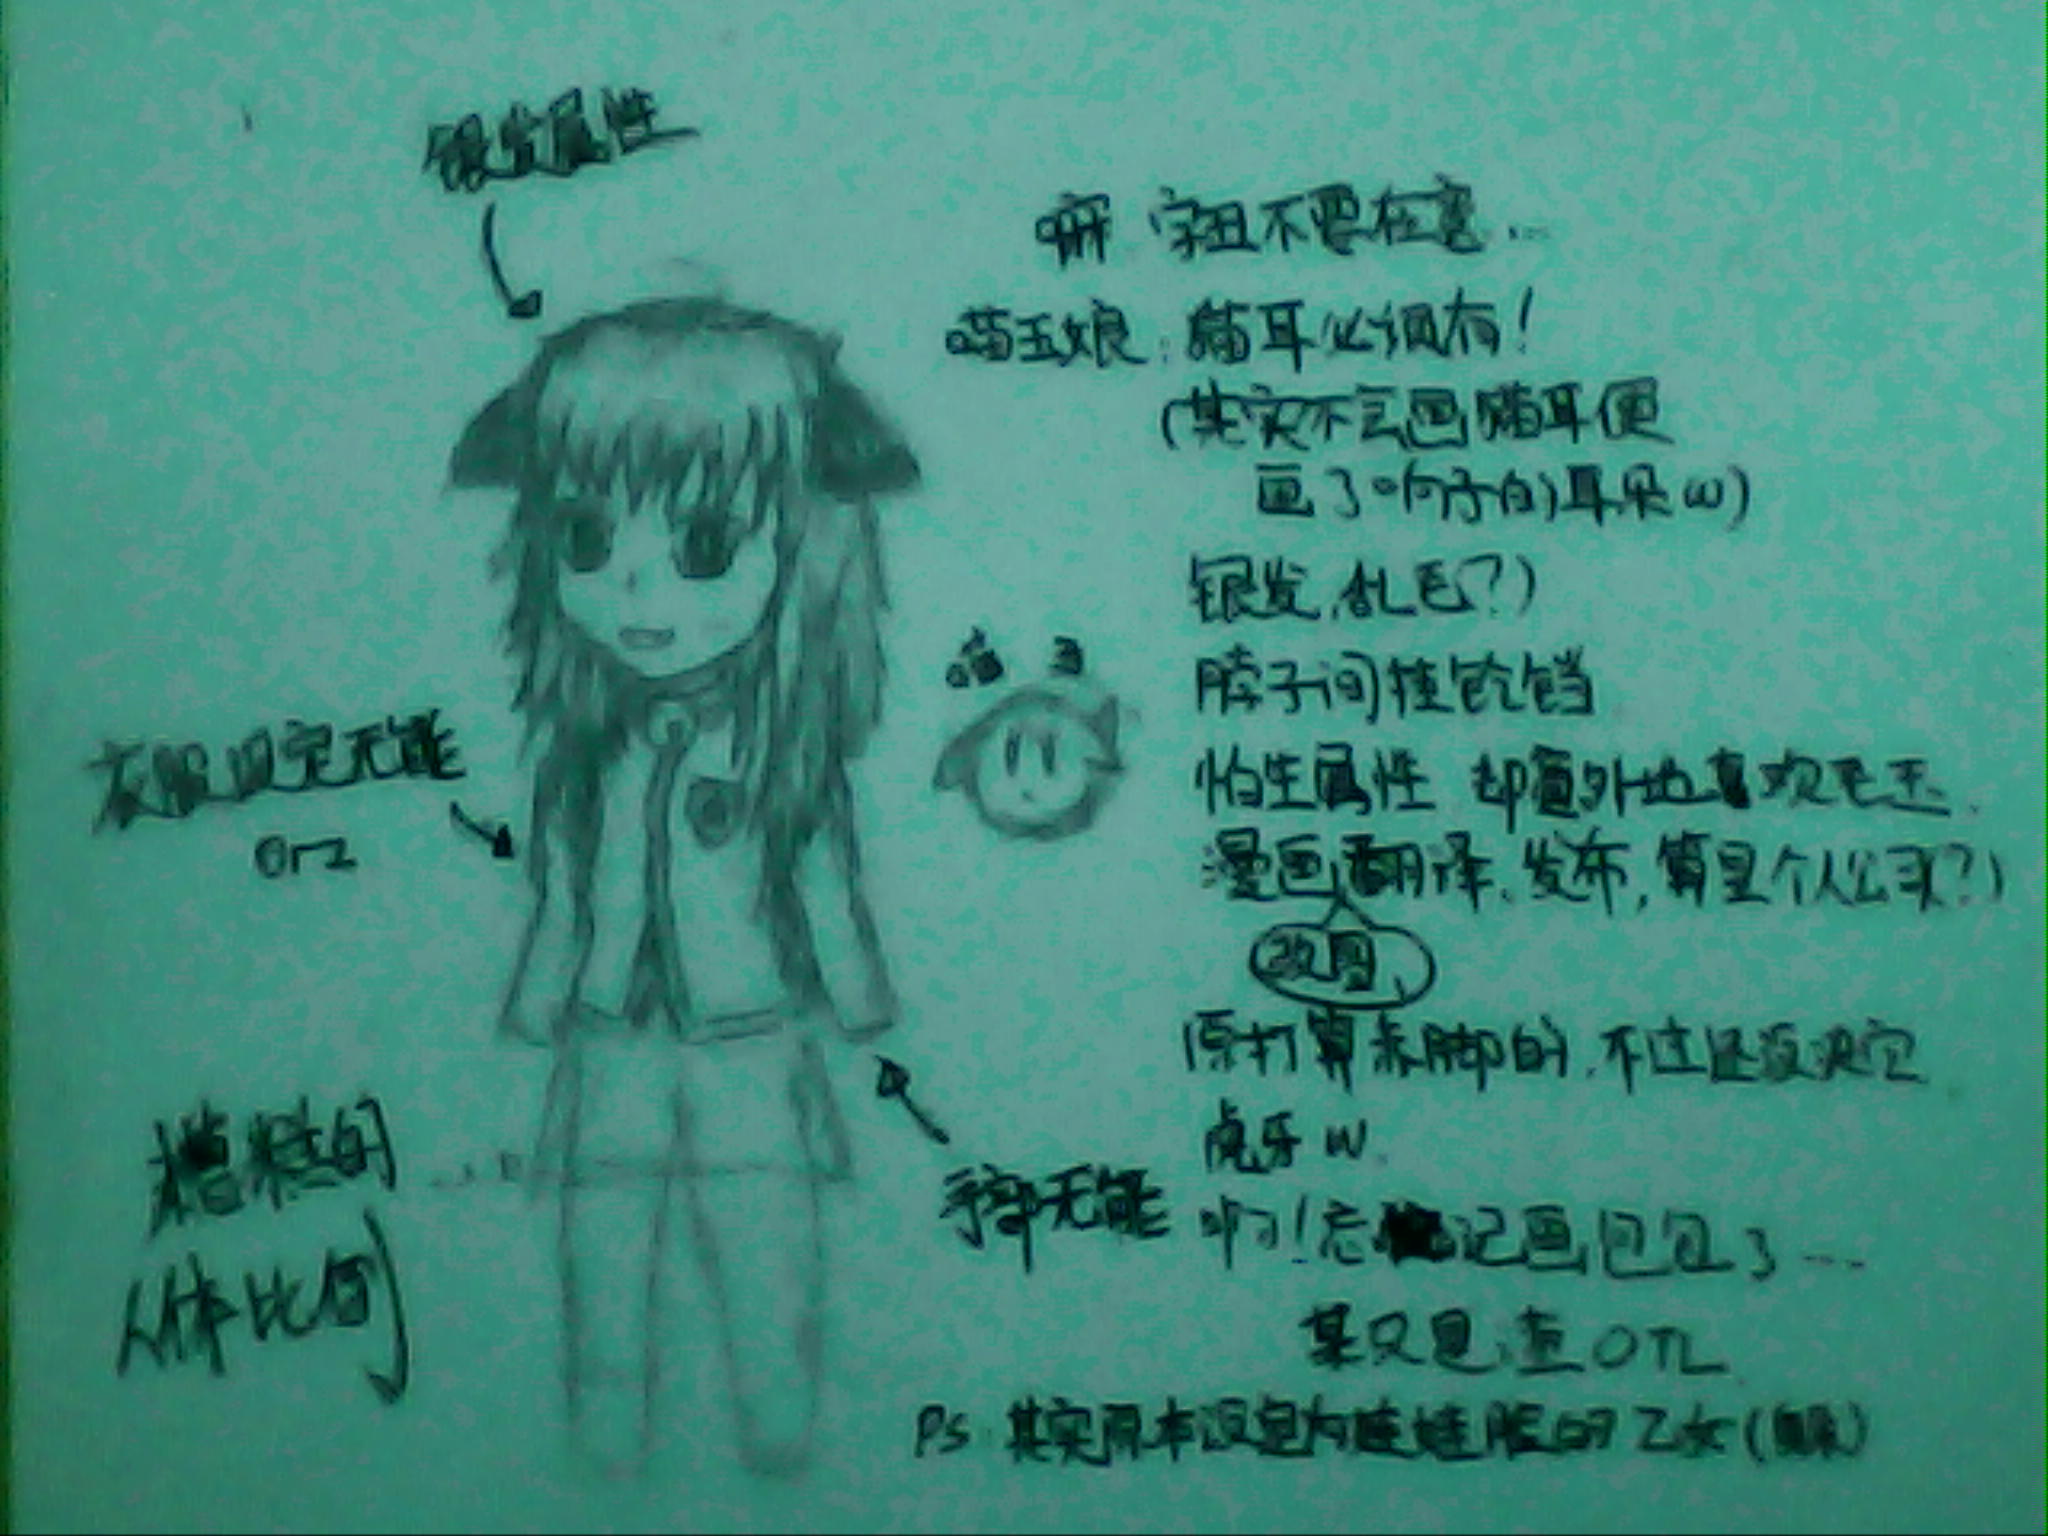 银发属性
嘛 字丑不要在意…
喵玉娘：猫耳必须有！
(其实不会画猫耳便
画了响子的耳朵w)
银发，乱毛?)
脖子间挂铃铛
喵玉
衣服设定无能
orz
怕生属性 却意外地喜欢毛玉.
漫画翻译、发布，算是个人公式?)
改图、
原打算赤脚的，不过还没决定
虎牙w.
糟糕的
人体比例
手部无能
啊！忘记画包包了……
某只是渣OTL
Ps：其实原本设定为娃娃脸的乙女